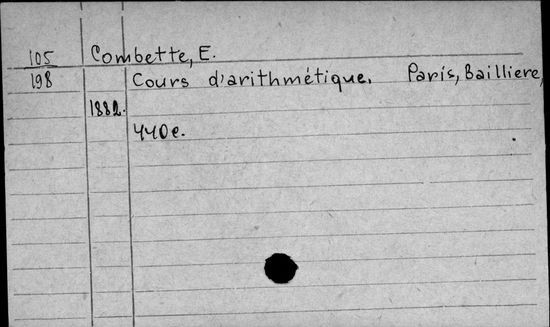 105 Combette, E.
198 Cours d'arithmétique. Paris, Bailliere,
1882.
440 c.